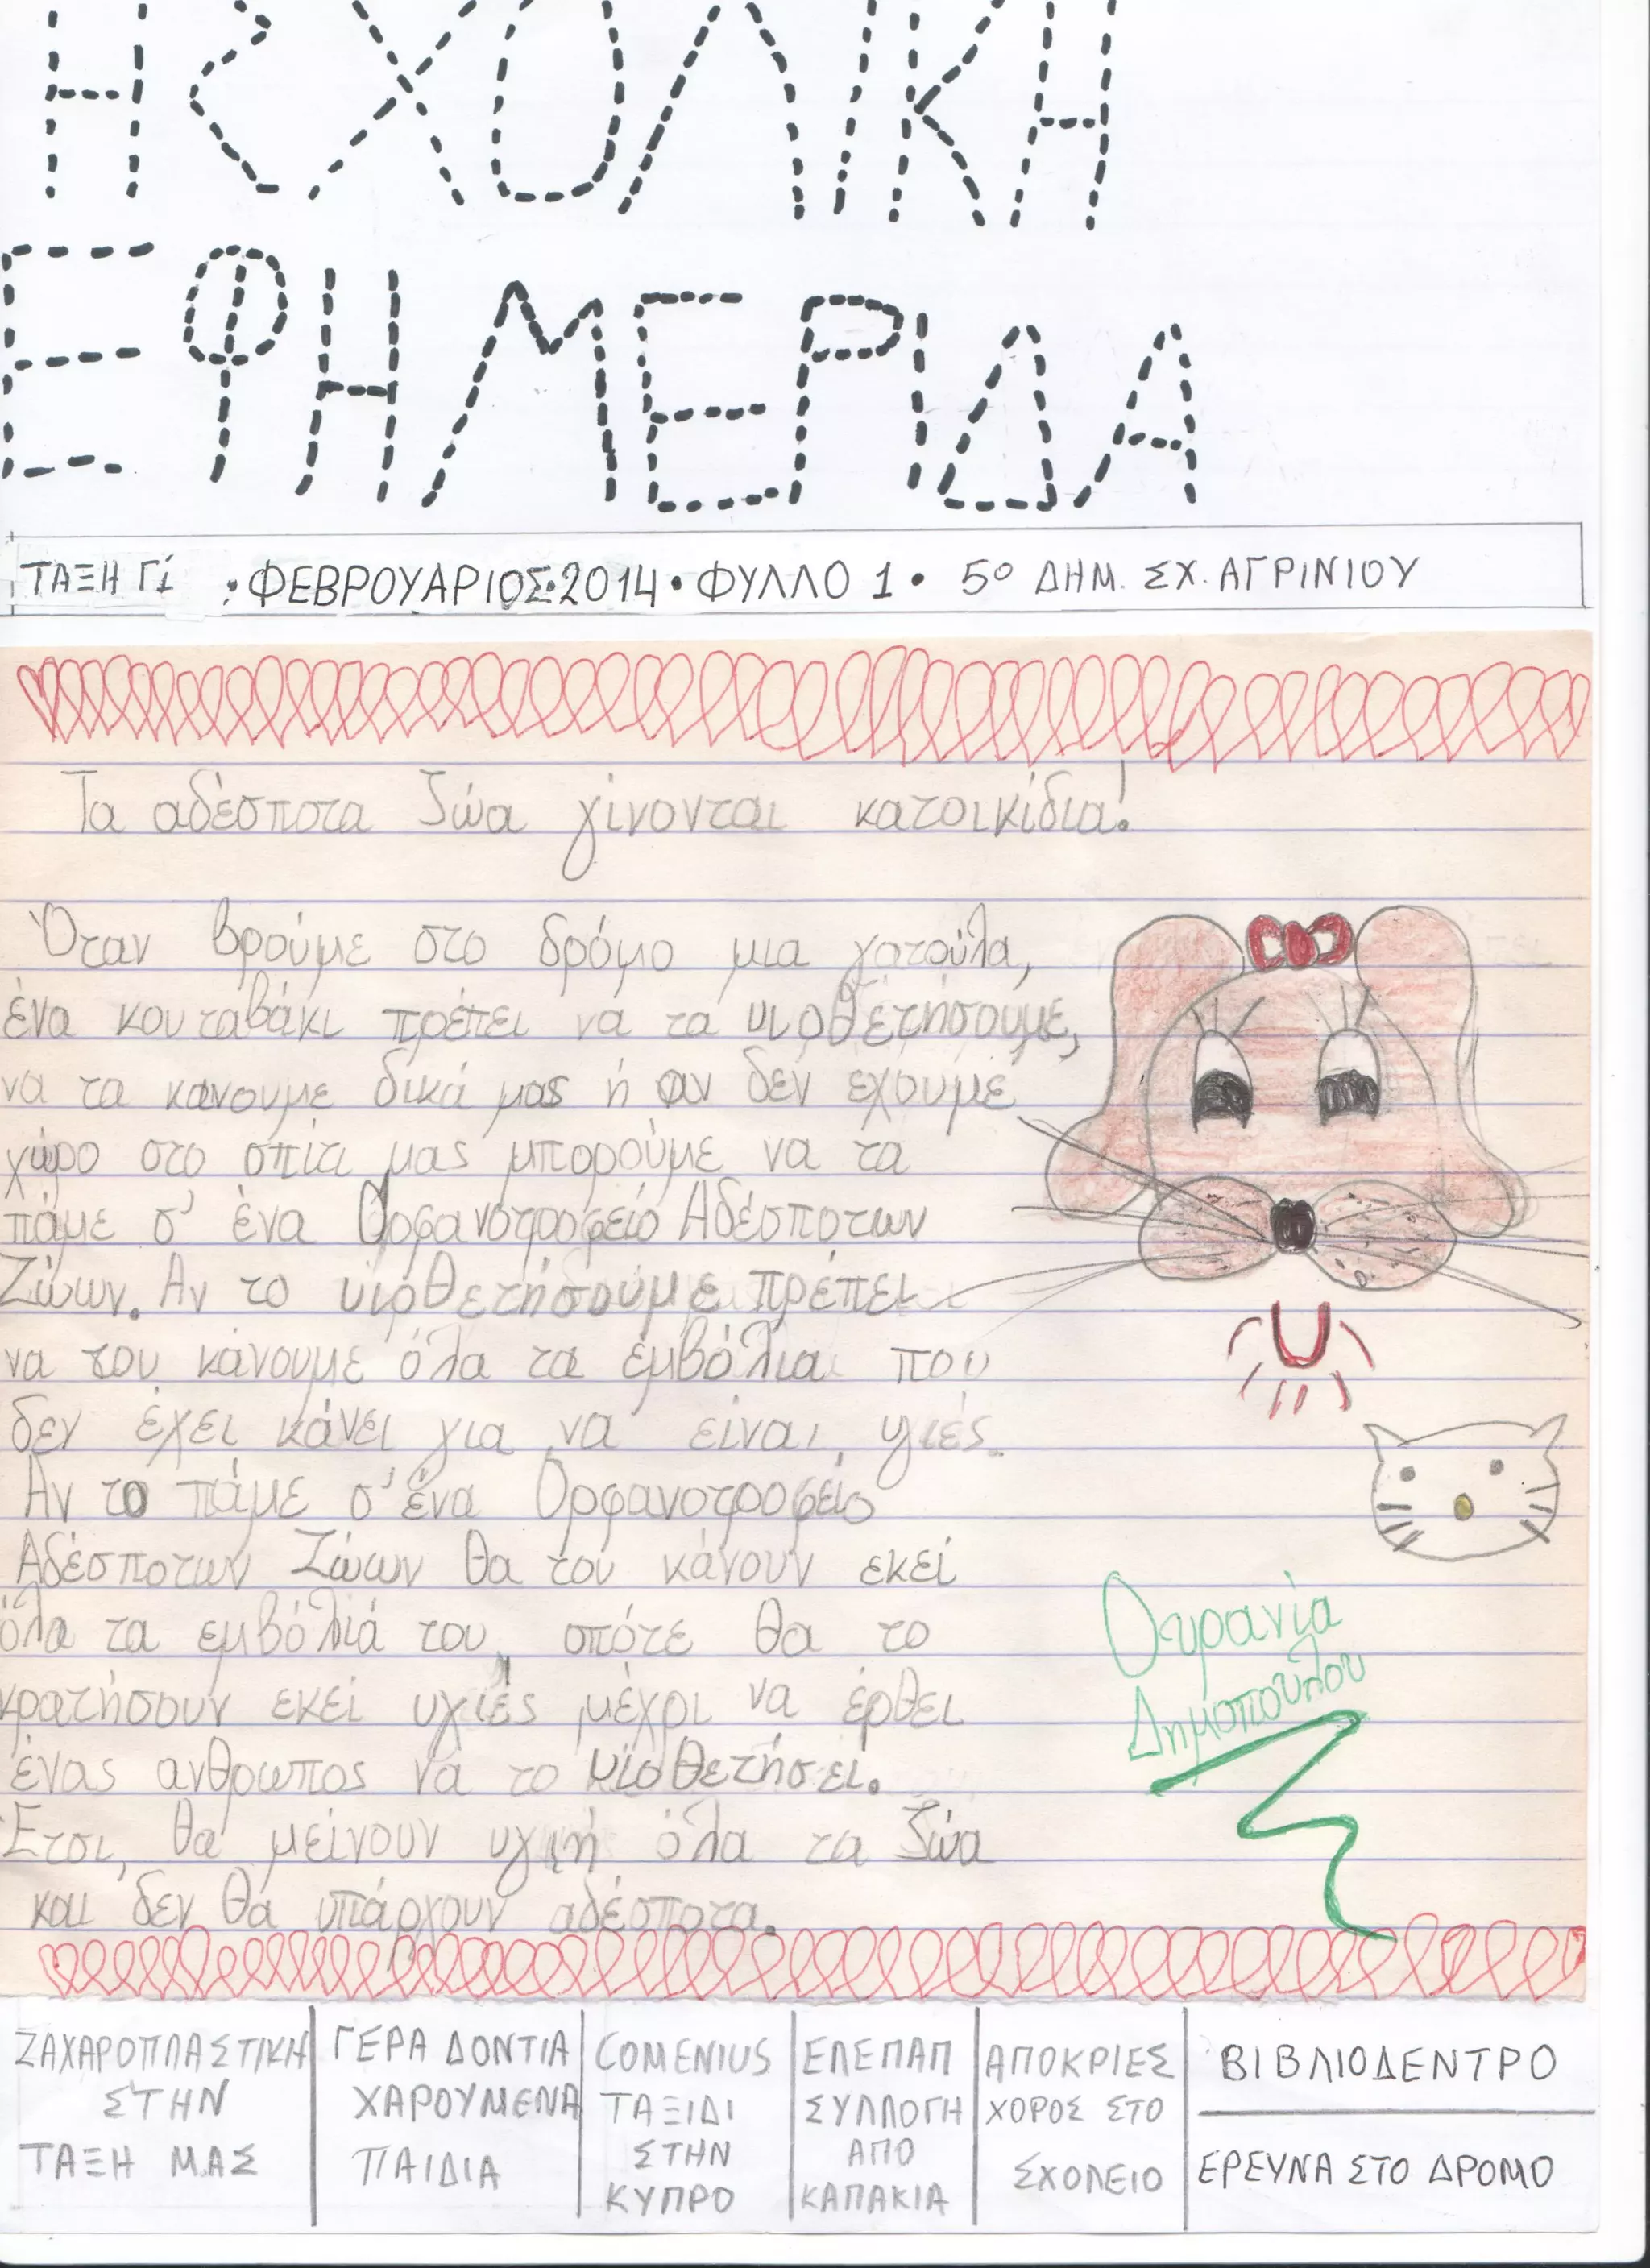 Η ΣΧΟΛΙΚΗ
ΕΦΗΜΕΡΙΔΑ
ΤΑΞΗ Γ1 • ΦΕΒΡΟΥΑΡΙΟΣ•2014 • ΦΥΛΛΟ 1 • 5ο ΔΗΜ. ΣΧ. ΑΓΡΙΝΙΟΥ
Τα αδέσποτα ζώα γίνονται κατοικίδια!
Όταν βρούμε στο δρόμο μια γατούλα,
ένα κουταβάκι πρέπει να τα υιοθετήσουμε,
να τα κάνουμε δικά μας ή αν δεν έχουμε
χώρο στο σπίτι μας μπορούμε να τα
πάμε σ' ένα Ορφανοτροφείο Αδέσποτων
Ζώων. Αν το υιοθετήσουμε πρέπει
να του κάνουμε όλα τα εμβόλια που
δεν έχει κάνει για να είναι υγιές.
Αν το πάμε σ' ένα Ορφανοτροφείο
Αδέσποτων Ζώων θα του κάνουν εκεί
όλα τα εμβόλιά του, οπότε θα το
κρατήσουν εκεί υγιές μέχρι να έρθει
ένας ανθρωπος να το υίοθετήσει.
Έτσι, θα μείνουν υγιή όλα τα ζώα
και δεν θα υπάρχουν αδέσποτα.
Ουρανία
Δημοπούλου
ΖΑΧΑΡΟΠΛΑΣΤΙΚΗ
ΣΤΗΝ
ΤΑΞΗ ΜΑΣ
ΓΕΡΑ ΔΟΝΤΙΑ
ΧΑΡΟΥΜΕΝΑ
ΠΑΙΔΙΑ
COMENIUS
ΤΑΞΙΔΙ
ΣΤΗΝ
ΚΥΠΡΟ
ΕΛΕΠΑΠ
ΣΥΛΛΟΓΗ
ΑΠΟ
ΚΑΠΑΚΙΑ
ΑΠΟΚΡΙΕΣ
ΧΟΡΟΣ ΣΤΟ
ΣΧΟΛΕΙΟ
ΒΙΒΛΙΟΔΕΝΤΡΟ
ΕΡΕΥΝΑ ΣΤΟ ΔΡΟΜΟ